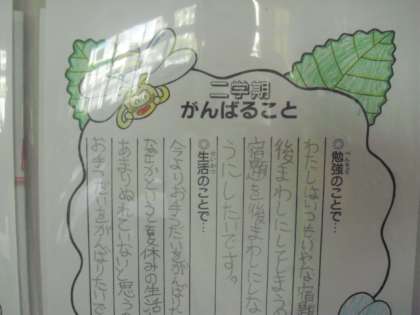 二学期
がんばること
◎勉強のことで…
わたしはいつもいやな宿題
後まわしにしてしまう
宿題を後まわしにしな
うにしたいです。
◎生活のことで…
今よりお手つだいをがんばりた
なぜかというと夏休みの生活
あまりぬれていないと思う
お手つだいをがんばりたいで